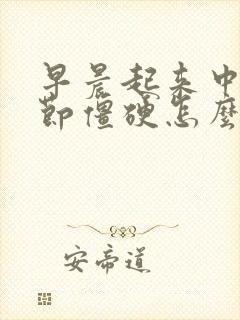 早晨起来中
节僵硬怎么
安帝道